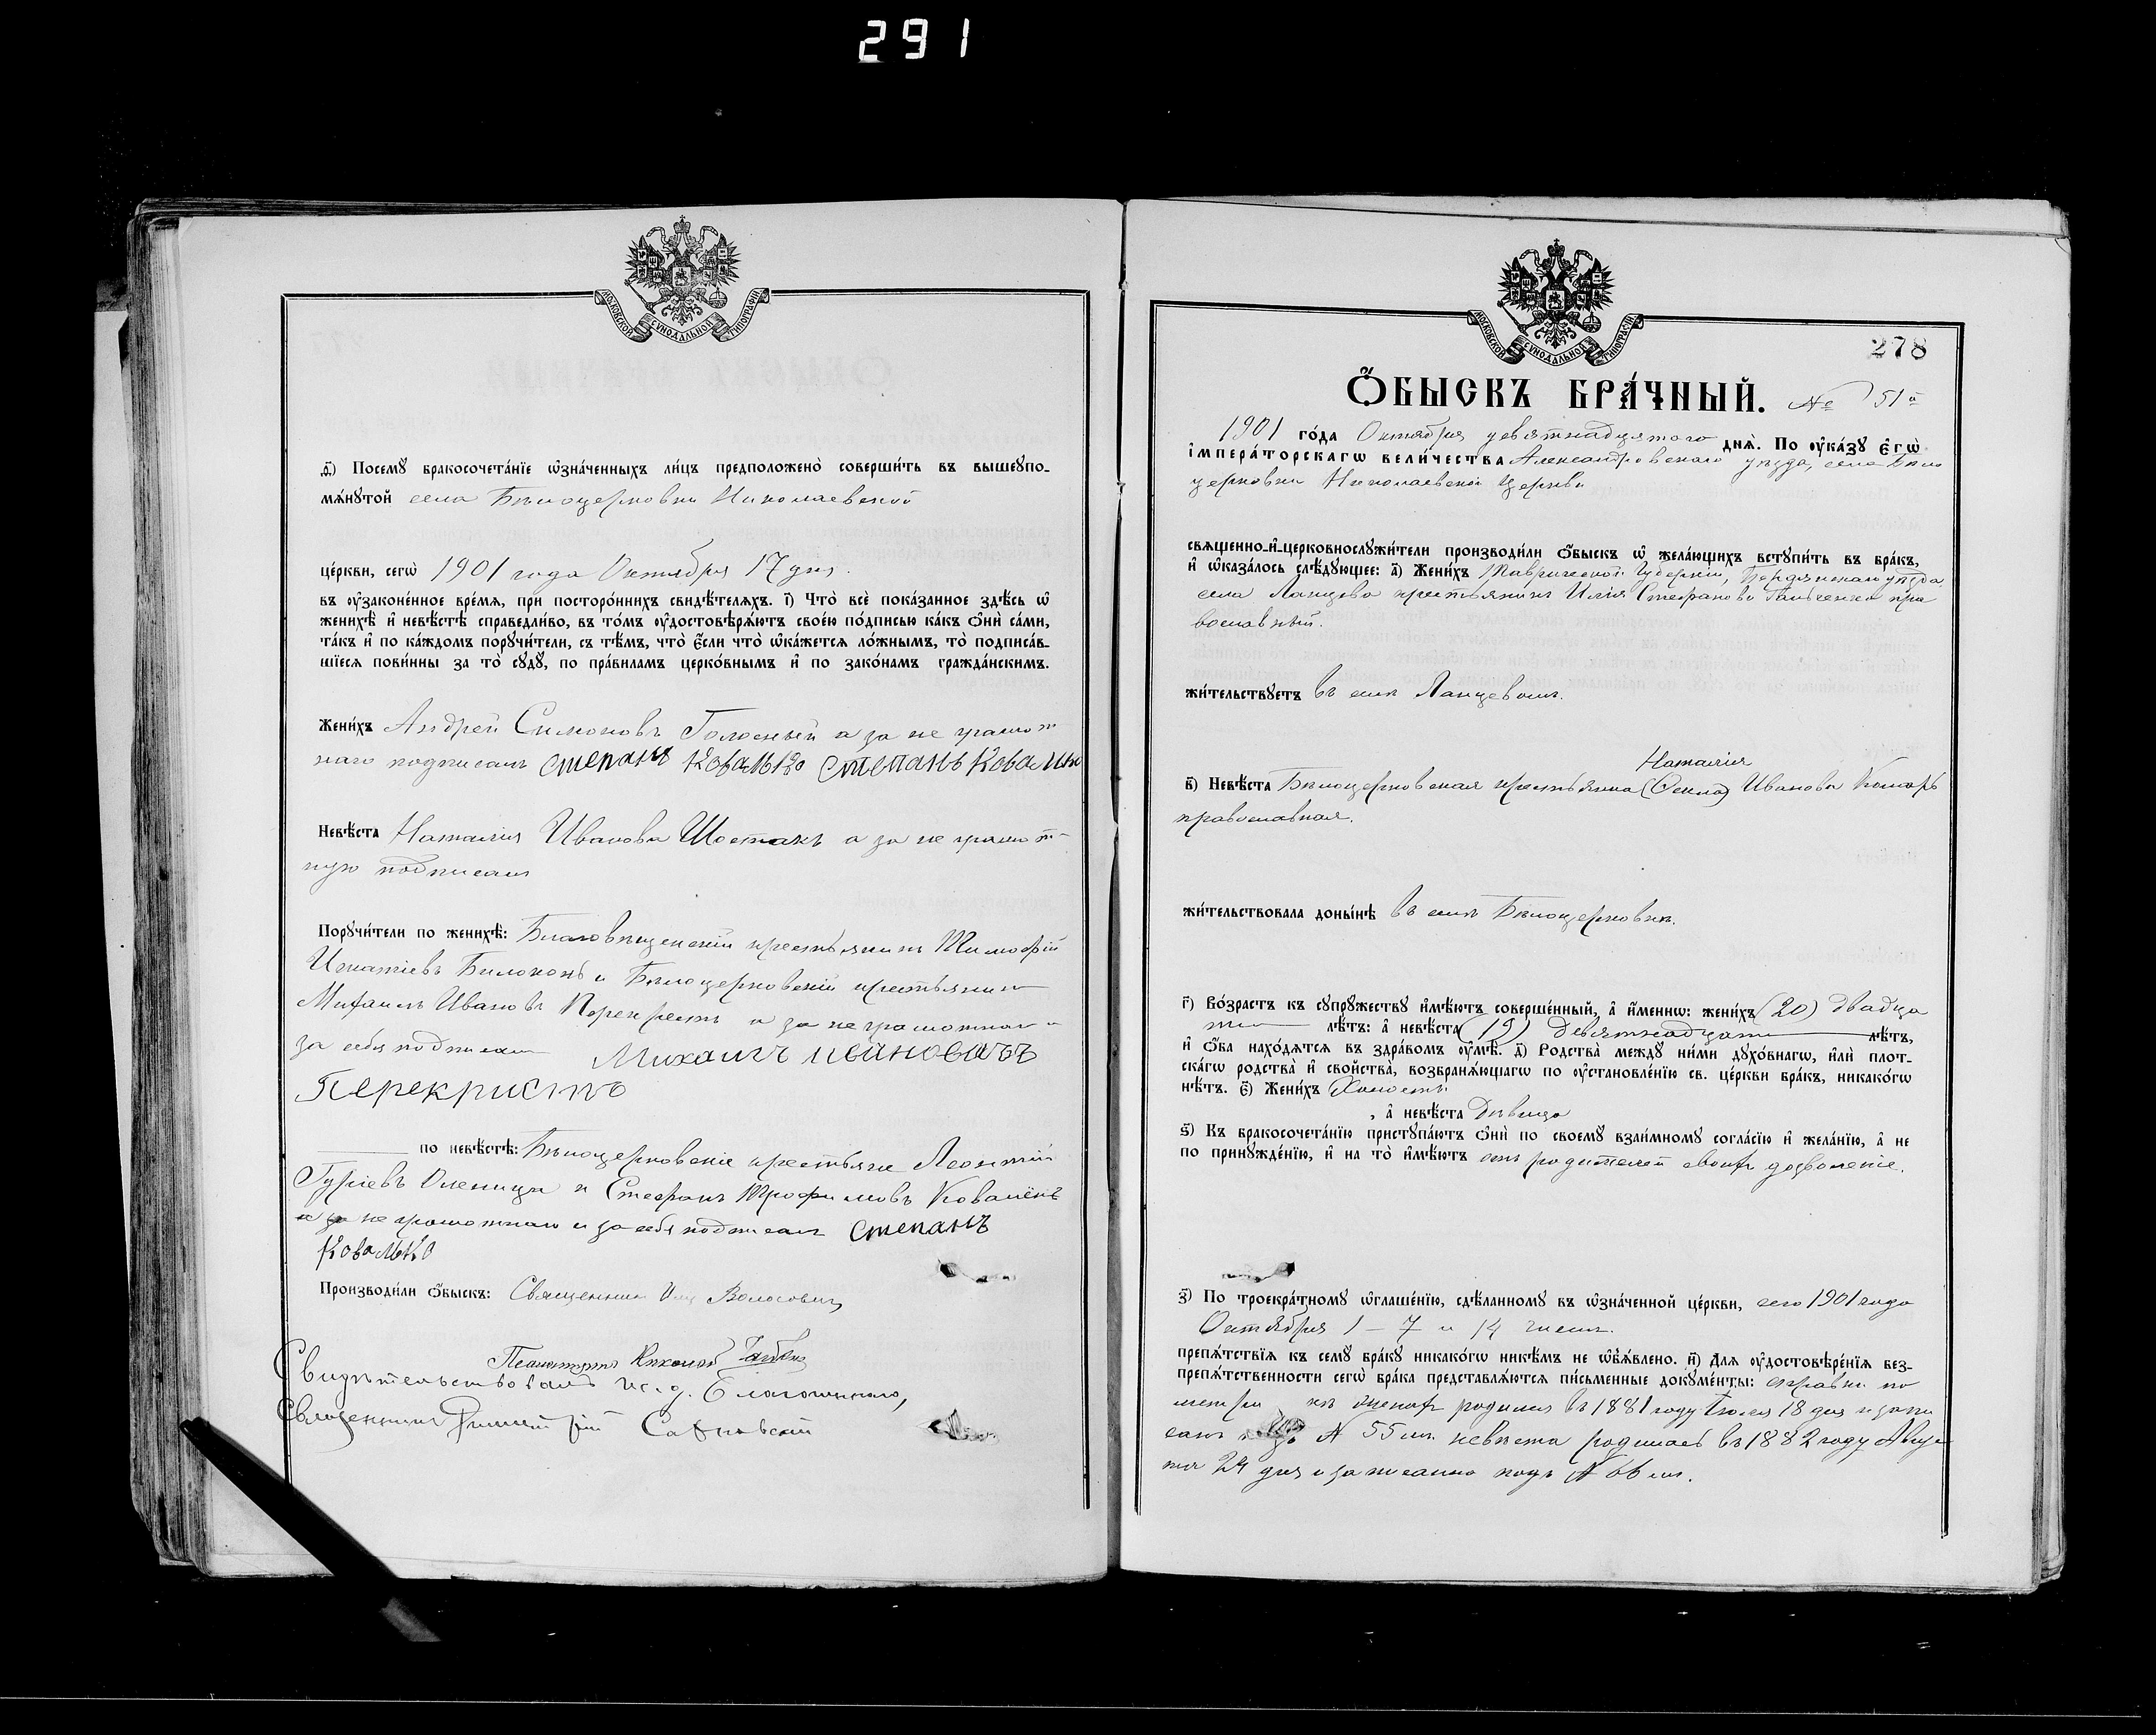 291
МОСКОВСКОЙ СѴНОДАЛЬНОЙ ТИПОГРАФІИ
Посемꙋ̀ бракосочета́нїе ѡ҆зна́ченныхъ ли́цъ предположено̀ соверши́ть въ вышеꙋпо-
мѧ́нꙋтой села Бѣлоцерковки Николаевской
це́ркви, сегѡ̀ 1901 года Октября 17 дня.
въ ᲂу҆зако́не́нное вре́мѧ, при посторо́ннихъ свидѣ́телѧхъ. і҃) Что̀ всѐ пока́занное здѣ́сь ѡ҆
женихѣ̀ и҆ невѣ́стѣ справедли́во, въ то́мъ ᲂу҆достовѣрѧ́ютъ свое́ю по́дписью ка́къ ѻ҆нѝ са́ми,
та́къ и҆ по ка́ждомъ порꙋчи́тели, съ тѣ́мъ, что̀ е҆́сли что̀ ѡ҆ка́жетсѧ ло́жнымъ, то̀ подписа́в-
шїесѧ пови́нны за то̀ сꙋдꙋ̀, по пра́виламъ церко́внымъ и҆ по зако́намъ гражда́нскимъ.
Жени́хъ Андрей Симоновъ Голосный а за не грамот
наго подписалъ степанъ Ковалько степанъ Ковалько
Невѣ́ста Наталия Иванова Шостакъ а за не грамот-
ную подписалъ
Порꙋчи́тели по женихѣ̀: Благовѣщенскій крестьянинъ Тимофій
Игнатіевъ Билоконь и Бѣлоцерковскій крестьянинъ
Михаилъ Ивановъ Перекрестъ а за не грамотнаго и
за себя подписалъ Михаилъ ивановъ
Перекристъ
по невѣ́стѣ: Бѣлоцерковскіе крестьяне Леонтій
Гуріевъ Оленица и Стефанъ Трофимовъ
а за не грамотнаго и за себя подписалъ степанъ
Ковалько
Производи́ли ѻ҆́быскъ: Священникъ Волосовичъ
Псаломщикъ Николай
Свидѣтельствовалъ и. д. Благочиннаго,
Священникъ
МОСКОВСКОЙ СѴНОДАЛЬНОЙ ТИПОГРАФІИ
278
Ѻ҆́БЫСКЪ БРА́ЧНЫЙ. № 51й
1901 го́да Октября девятнадцятого днѧ̀. По ᲂу҆ка́зꙋ Є҆гѡ̀
і҆мпера́торскагѡ вели́чества Александровскаго уѣзда, села Бѣло
церковки Николаевской Церкви
свѧщенно-и҆-церковнослꙋжи́тели производи́ли ѻ҆́быскъ ѡ҆ жела́ющихъ встꙋпи́ть въ бра́къ,
и҆ ѡ҆каза́лось слѣ́дꙋющее: а҃) Жени́хъ Таврической Губерніи, Бердянскаго уѣзда,
села Ланцево крестьянинъ Илія Стефановъ Гальченко пра
вославный.
жи́тельствꙋетъ въ селѣ Ланцевомъ.
Наталия
в҃) Невѣ́ста Бѣлоцерковская крестьянка (Текла) Иванова Комарь
православная.
жи́тельствовала доны́нѣ въ селѣ Бѣлоцерковкѣ.
г҃) Во́зрастъ къ сꙋпрꙋ́жествꙋ и҆мѣ́ютъ соверше́нный, а҆ и҆́меннѡ: жени́хъ (20) двадца
ти лѣ́тъ: а҆ невѣ́ста (19) девятнадцати лѣ́тъ,
и҆ ѻ҆́ба нахо́дѧтсѧ въ здра́вомъ ᲂу҆мѣ̀. д҃) Родства̀ междꙋ ни́ми дꙋхо́внагѡ, и҆лѝ плот-
ска́гѡ родства̀ и҆ сво́йства̀, возбранѧ́ющагѡ по ᲂу҆становле́нїю св. це́ркви бра́къ, никако́гѡ
нѣ́тъ. є҃) Жени́хъ Холостъ
, а҆ невѣ́ста Дѣвица
ѕ҃) Къ бракосочета́нїю пристꙋпа́ютъ ѻ҆нѝ по своемꙋ̀ взаи́мномꙋ согла́сїю и҆ жела́нїю, а҆ не
по принꙋжде́нїю, и҆ на то̀ и҆мѣ́ютъ отъ родителей своихъ дозволеніе.
з҃) По троекра́тномꙋ ѡ҆глаше́нїю, сдѣ́ланномꙋ въ ѡ҆зна́ченной це́ркви, сего 1901 года
Октября 1 – 7 и 14 числъ.
препѧ́тствїѧ къ семꙋ̀ бра́кꙋ никако́гѡ никѣ́мъ не ѡ҆б̾ѧ́влено. и҃) Длѧ ᲂу҆достовѣре́нїѧ без-
препѧ́тственности сегѡ̀ бра́ка представлѧ́ютсѧ пи́сьменные докꙋме́нты: справки по
метри женихъ родился въ 1881 году Іюля 18 дня и запи
санъ № 55 мъ невѣста родилась въ 1882 году Авгус
та 24 дня и записана подъ № 66 мъ.